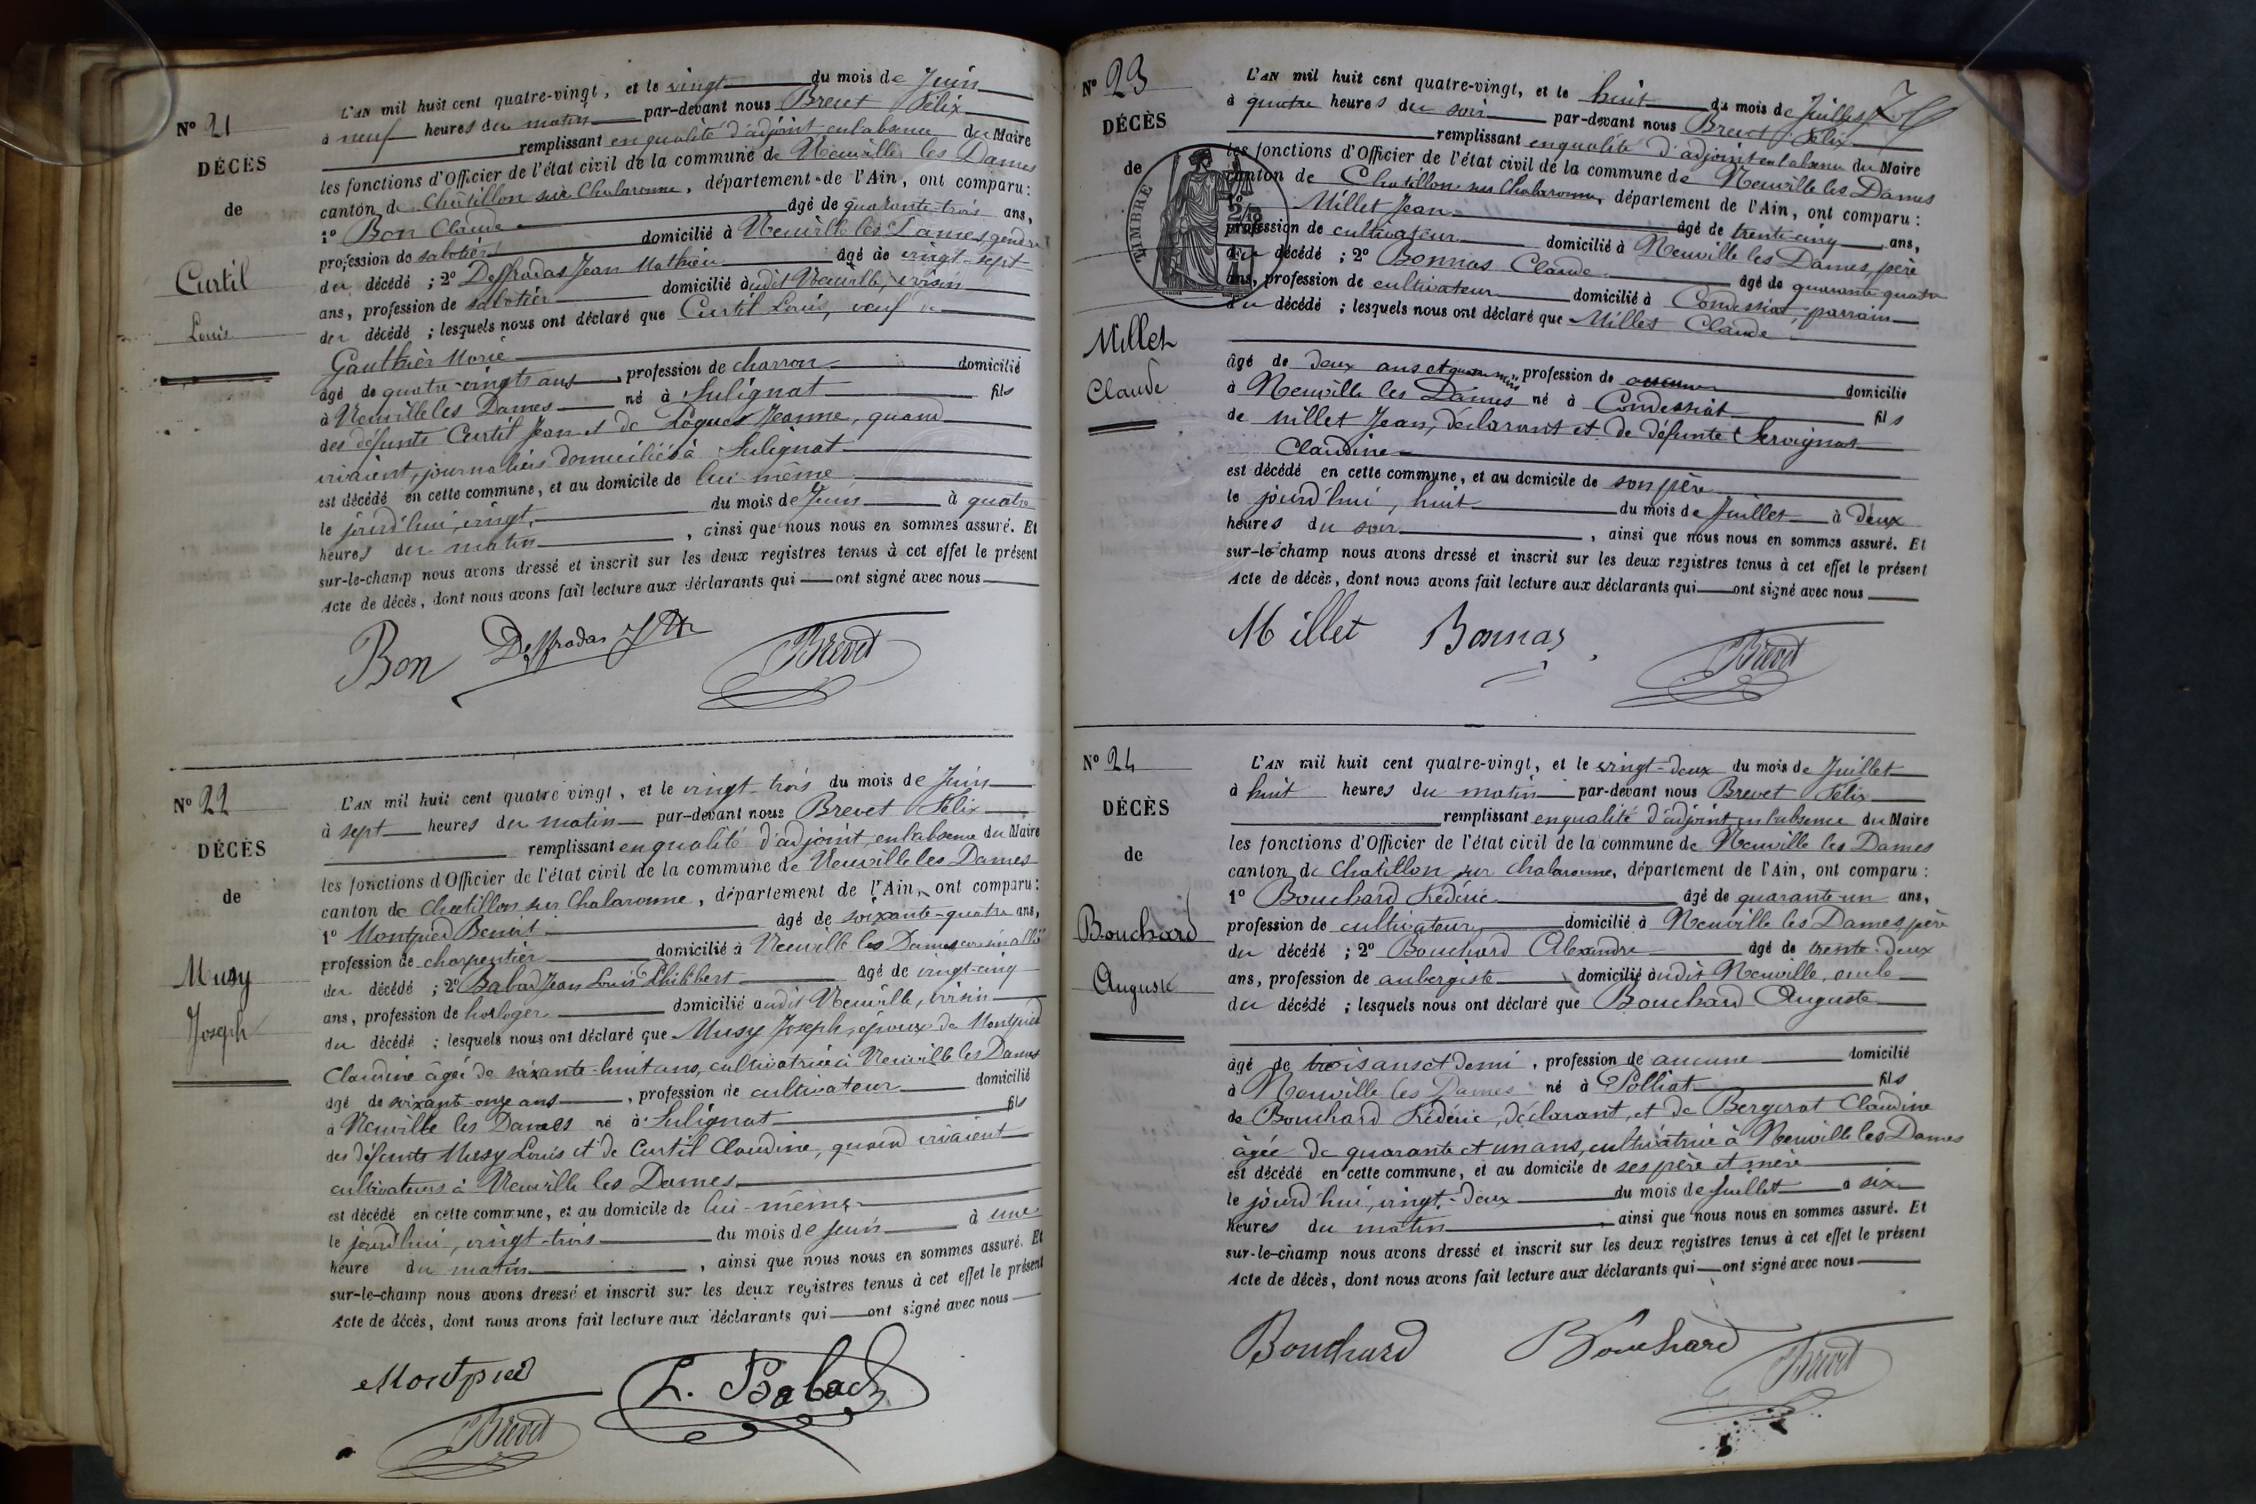 N° 21
DÉCÈS
de
Curtil
Louis
L'AN mil huit cent quatre-vingt, et le vingt du mois de Juin
à neuf heures du matin par-devant nous Brevet Félix
remplissant en qualité d'adjoint en l'absence du Maire
les fonctions d'Officier de l'état civil de la commune de Neuville les Dames
canton de Châtillon sur Chalaronne, département de l'Ain, ont comparu :
1° Bon Claude âgé de quarante-trois ans,
profession de sabotier domicilié à Neuville les Dames, gendre
du décédé ; 2° Desfradas Jean Mathieu âgé de vingt-sept
ans, profession de sabotier domicilié à udit Neuville, voisin
du décédé ; lesquels nous ont déclaré que Curtil Louis, veuf de
Gauthier Marie
âgé de quatre-vingts ans, profession de charron domicilié
à Neuville les Dames né à Sulignat fils
des défunts Curtil Jean et de Jeanne, quand
vivaient, journaliers domiciliés à Sulignat
est décédé en cette commune, et au domicile de lui-même
le jourd'hui, vingt, du mois de Juin à quatre
heures du matin, ainsi que nous nous en sommes assuré. Et
sur-le-champ nous avons dressé et inscrit sur les deux registres tenus à cet effet le présent
Acte de décès, dont nous avons fait lecture aux déclarants qui ont signé avec nous
Bon Desfradas Brevet
N° 22
DÉCÈS
de
Musy
Joseph
L'AN mil huit cent quatre vingt, et le vingt-trois du mois de Juin
à sept heures du matin par-devant nous Brevet Félix
remplissant en qualité d'adjoint, en l'absence du Maire
les fonctions d'Officier de l'état civil de la commune de Neuville les Dames
canton de Chatillon sur Chalaronne, département de l'Ain, ont comparu :
1° Montpied Benoit âgé de soixante-quatre ans,
profession de charpentier domicilié à Neuville les Dames cousin allié
du décédé ; 2° Babad Jean Louis Philibert âgé de vingt-cinq
ans, profession de horloger domicilié audit Neuville, voisin
du décédé ; lesquels nous ont déclaré que Musy Joseph, époux de Montpied
Claudine âgée de soixante-huit ans, cultivatrice à Neuville les Dames
âgé de soixant-onze ans, profession de cultivateur domicilié
à Neuville les Dames né à Sulignat fils
des défunts Musy Louis et de Curtil Claudine, quand vivaient
cultivateurs à Neuville les Dames
est décédé en cette commune, et au domicile de lui-même
le jourd'hui, vingt-trois du mois de Juin à une
heure du matin, ainsi que nous nous en sommes assuré. Et
sur-le-champ nous avons dressé et inscrit sur les deux registres tenus à cet effet le présent
Acte de décès, dont nous avons fait lecture aux déclarants qui ont signé avec nous
Montpied L. Babad
Brevet
N° 23
DÉCÈS
de
TIMBRE
Millet
Claude
L'AN mil huit cent quatre-vingt, et le huit du mois de Juillet
à quatre heures du soir par-devant nous Brevet Félix
remplissant en qualité d'adjoint en l'absence du Maire
les fonctions d'Officier de l'état civil de la commune de Neuville les Dames
canton de Chatillon sur Chalaronne, département de l'Ain, ont comparu :
1° Millet Jean âgé de trente-cinq ans,
profession de cultivateur domicilié à Neuville les Dames, père
du décédé ; 2° Bonnas Claude âgé de quarante quatre
ans, profession de cultivateur domicilié à Condeissiat, parrain
du décédé ; lesquels nous ont déclaré que Millet Claude
âgé de deux ans et quatre mois, profession de aucune domicilié
à Neuville les Dames né à Condessiat fils
de Millet Jean, déclarant et de défunte Servignat
Claudine
est décédé en cette commune, et au domicile de son père
le jourd'hui, huit du mois de Juillet à deux
heures du soir, ainsi que nous nous en sommes assuré. Et
sur-le-champ nous avons dressé et inscrit sur les deux registres tenus à cet effet le présent
Acte de décès, dont nous avons fait lecture aux déclarants qui ont signé avec nous
Millet Bonnas Brevet
N° 24
DÉCÈS
de
Bouchard
Auguste
L'AN mil huit cent quatre-vingt, et le vingt-deux du mois de Juillet
à huit heures du matin par-devant nous Brevet Félix
remplissant en qualité d'adjoint en l'absence du Maire
les fonctions d'Officier de l'état civil de la commune de Neuville les Dames
canton de Chatillon sur Chalaronne, département de l'Ain, ont comparu :
1° Bouchard Frédéric âgé de quarante-un ans,
profession de cultivateur domicilié à Neuville les Dames, père
du décédé ; 2° Bouchard Alexandre âgé de trente-deux
ans, profession de aubergiste domicilié àudit Neuville, oncle
du décédé ; lesquels nous ont déclaré que Bouchard Auguste
âgé de trois ans et demi, profession de aucune domicilié
à Neuville les Dames né à Polliat fils
de Bouchard Frédéric, déclarant, et de Bergerat Claudine
âgée de quarante et un ans, cultivatrice à Neuville les Dames
est décédé en cette commune, et au domicile de ses père et mère
le jourd'hui, vingt-deux du mois de Juillet à six
heures du matin, ainsi que nous nous en sommes assuré. Et
sur-le-champ nous avons dressé et inscrit sur les deux registres tenus à cet effet le présent
Acte de décès, dont nous avons fait lecture aux déclarants qui ont signé avec nous
Bouchard Bouchard Brevet